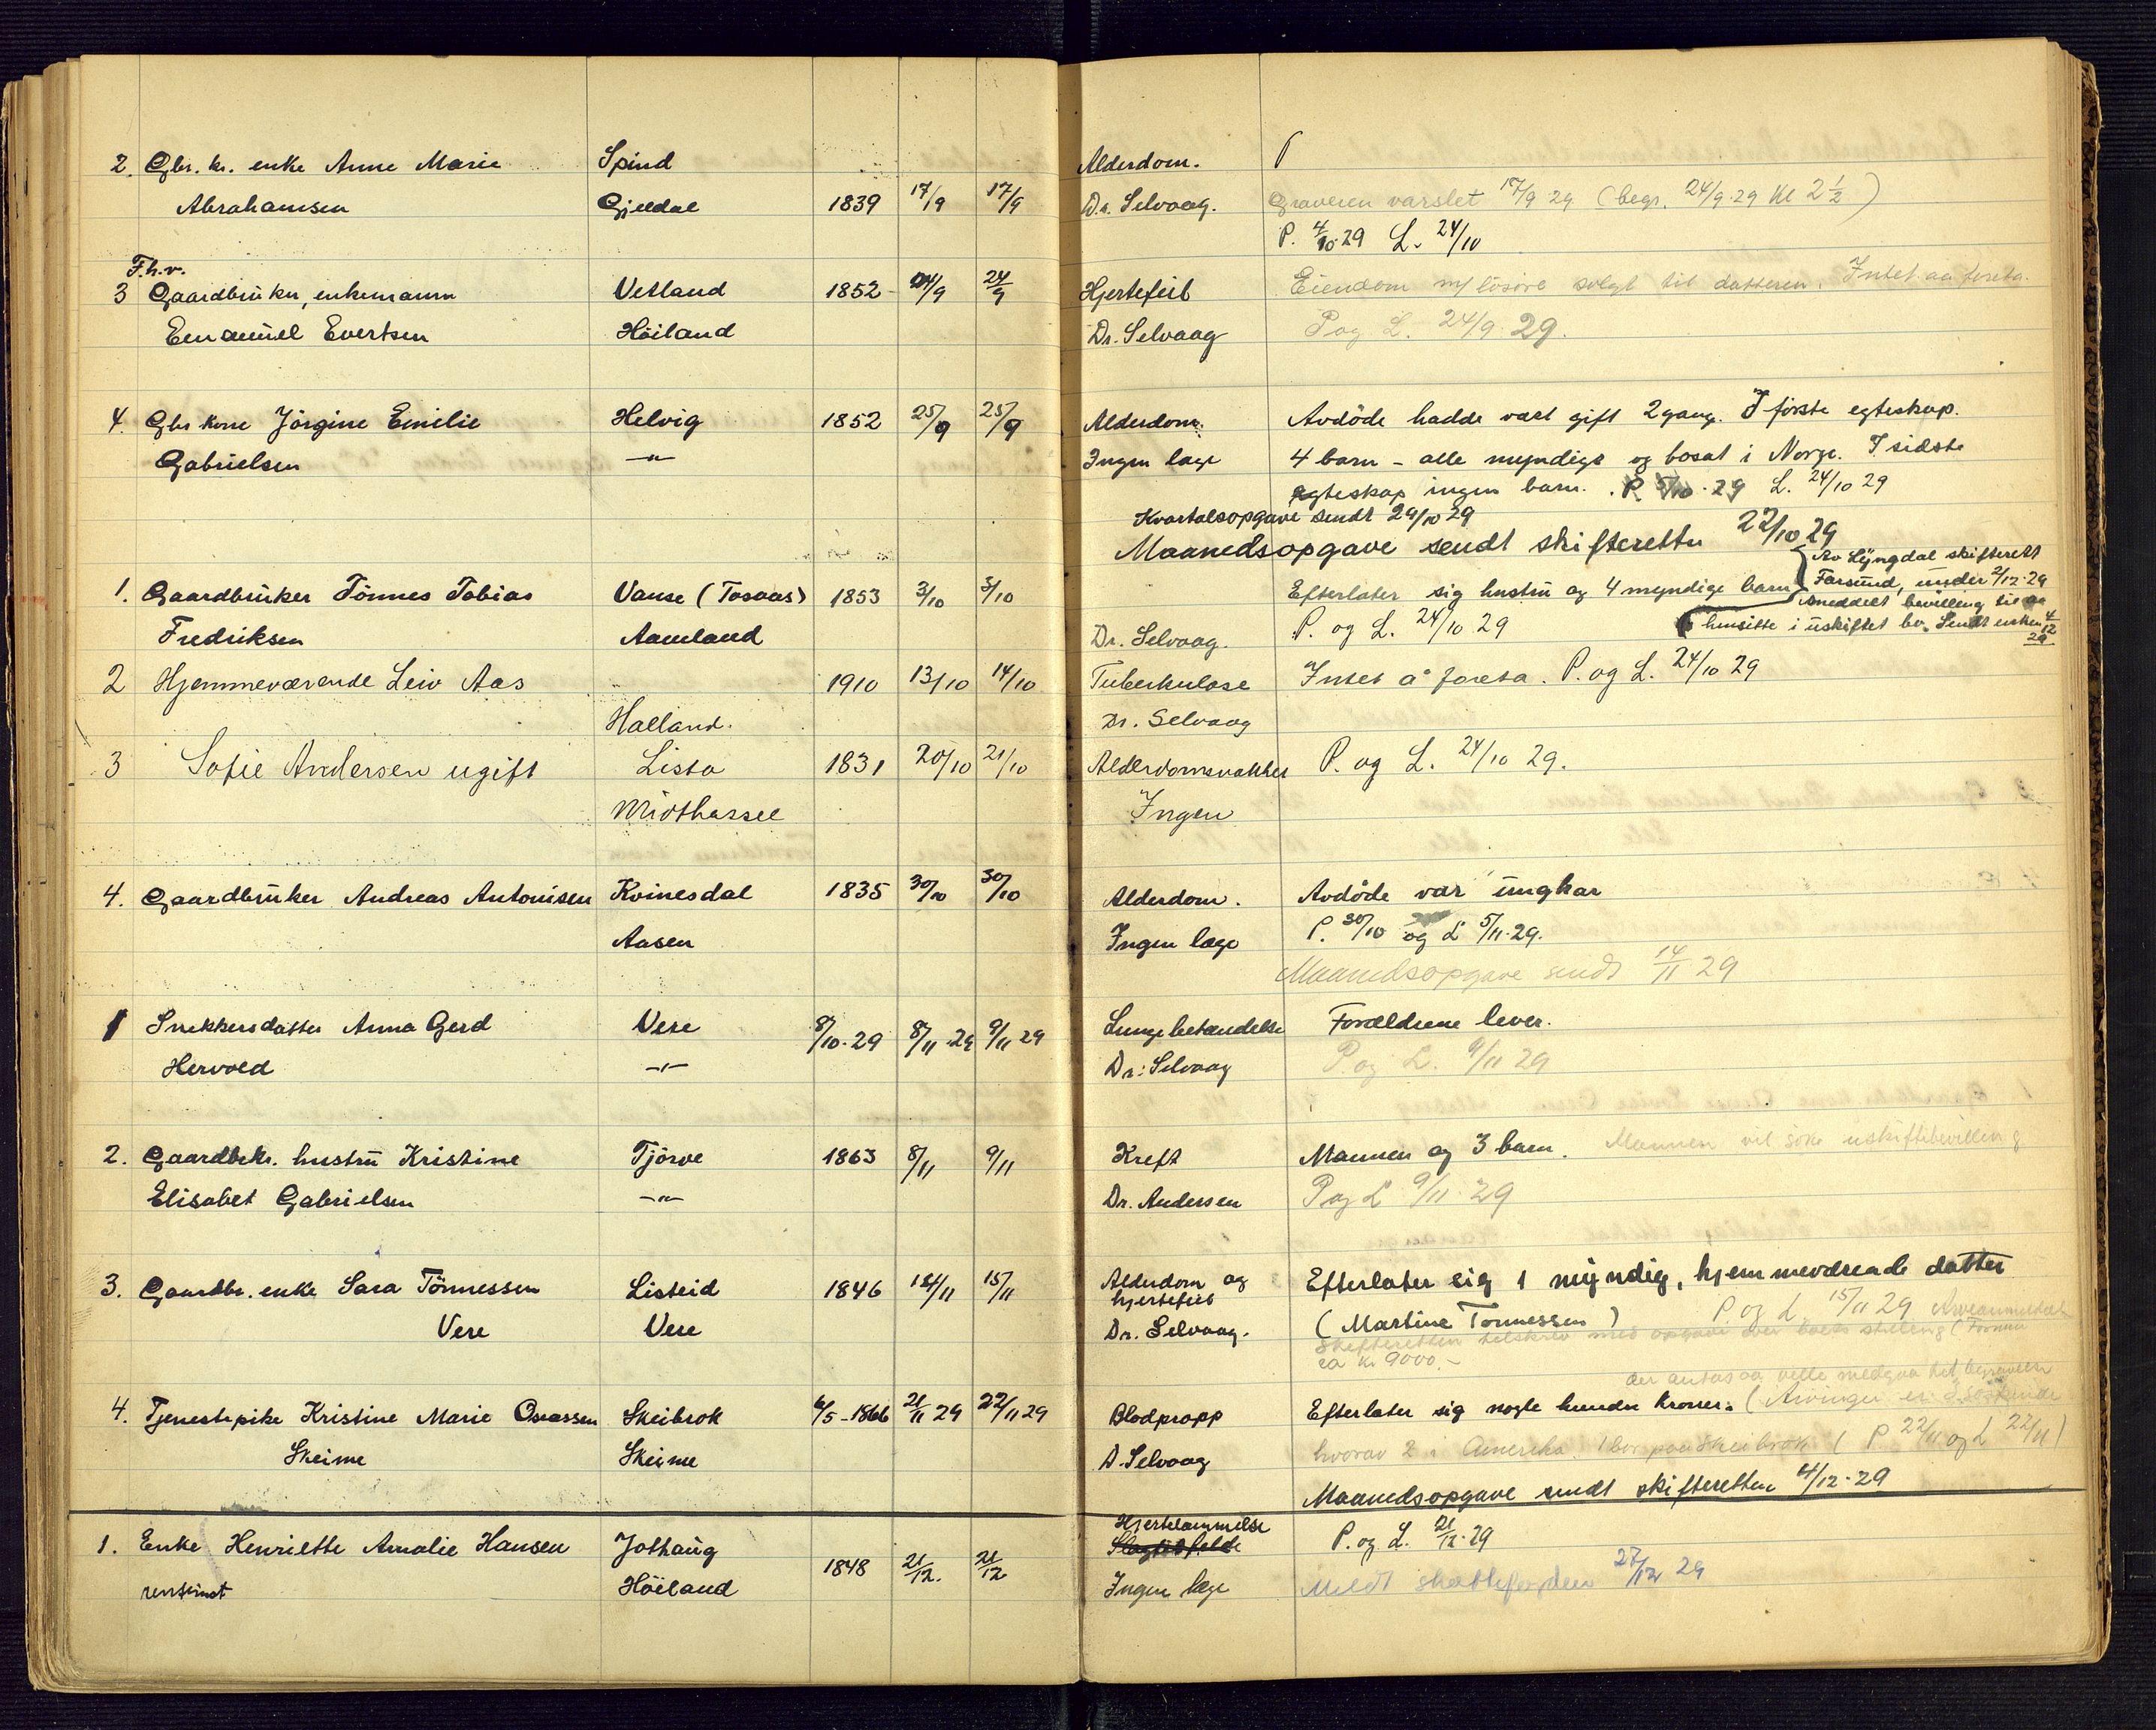 2. Gbr. kr. enke Anne Marie Spind Alderdom.
Abrahamsen Gjeldal 1839 17/9 17/9 Dr. Selvaag. Graveren varslet 17/9 29 (begr. 24/9 29 Kl 2 1/2)
P. 4/10 29 L. 24/10
F.h.v.
3 Gaardbruker, enkemann Vetland 1852 24/9 24/9 Hjertefeil Eiendom m/ lösöre solgt til datteren. Intet aa foreta.
Emanuel Evertsen Höiland Dr. Selvaag P og L. 24/9 29.
4. Gbr kone Jörgine Emilie Helvig 1852 25/9 25/9 Alderdom. Avdöde hadde vært gift 2 gang. I förste egteskap.
Gabrielsen -"- Ingen læge 4 barn - alle myndige og bosat i Norge. I sidste
egteskap ingen barn. P. 5/10 29 L. 24/10 29
Kvartalsopgave sendt 29/10 29
Maanedsopgave sendt skifteretten 22/10 29
1. Gaardbruker Tönnes Tobias Vanse (Tosaas) 1853 3/10 3/10 Efterlater sig hustru og 4 myndige barn
Av Lyngdal skifterett
Farsund, under 2/12 29
meddelt bevilling til aa
hensitte i uskiftet bo. Sendt enken 4/12 29
Fredriksen Aamland Dr. Selvaag. P. og L. 24/10 29
2 Hjemmeværende Leiv Aas 1910 13/10 14/10 Tuberkulose Intet å foreta. P. og L. 24/10 29
Halland. Dr. Selvaag
3 Sofie Andersen ugift Lista 1831 20/10 21/10 Alderdomsvakhet P. og L. 24/10 29.
Midthassel Ingen
4. Gaardbruker Andreas Antonisen Kvinesdal 1835 30/10 30/10 Alderdom. Avdöde var ungkar
Aasen Ingen læge P. 30/10 og L 5/11 29.
Maanedsopgave sendt 14/11 29
1 Snekkersdatter Anna Gerd Vere 8/10-29 8/11-29 9/11 29 Lungebetændelse Forældrene lever.
Hervold -"- Dr. Selvaag P og L. 9/11 29
2. Gaardbrkr. hustru Kristine Tjörve 1863 8/11 9/11 Kreft Mannen og 3 barn. Mannen vil söke uskiftebevilling
Elisabet Gabrielsen -"- Dr. Andersen P og L 9/11 29
3. Gaardbr. enke Sara Tönnessen Listeid 1846 14/11 15/11 Alderdom og Efterlater sig 1 myndig, hjemmeværende datter
hjertefeil
Vere Vere Dr. Selvaag. (Martine Tönnessen) P. og L. 15/11 29
Skifteretten tilskrev med opgave over boets stilling (Formue
ca kr 9000.-
der antas aa ville medgaa til begravelse
4. Tjenestepike Kristine Marie Osvassen Skeibrok 6/5-1866 21/11 29 22/11 29 Blodpropp Efterlater sig nogle hundre kroner. (Arvinger er 3 söskende
Skeime Skeime D. Selvaag hvorav 2 i Amerika 1 bor paa Skeibrok (P 22/11 og L 22/11)
Maanedsopgave sendt skifteretten 4/12-29
1. Enke Henriette Amalie Hansen Jothaug 1848 21/12. 21/12 Hjertelammelse P. og L. 21/12-29
Slagtilfelde
Höiland Ingen læge Meldt 27/12 29